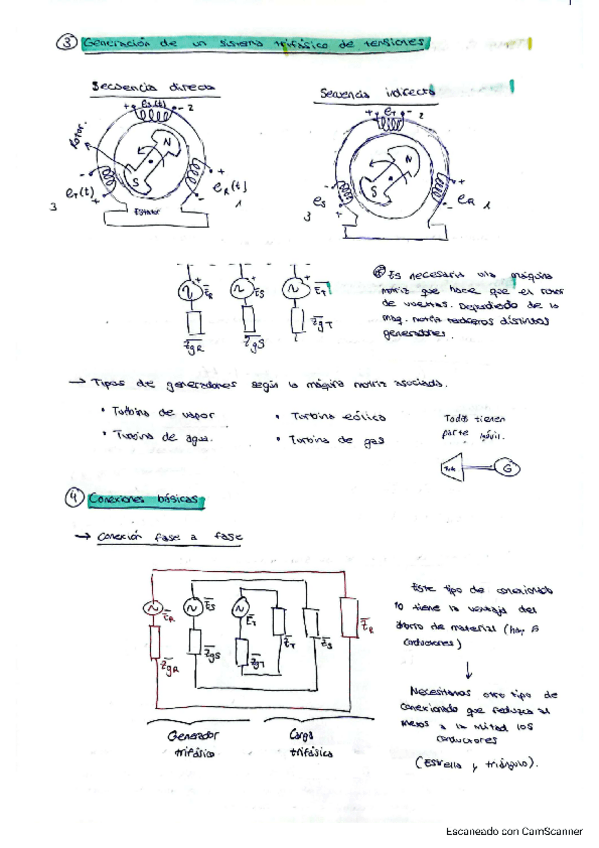 ③ Generación de un sistema trifásico de tensiones
Secuencia directa
Secuencia indirecta
+ e_s(t) - 2
+ e_T - 2
Rotor
N
S
N
S
e_T(t)
e_R(t)
e_S
e_R
3
1
3
1
Estator
E_R
E_S
E_T
Z_gR
Z_gS
Z_gT
Es necesaria una máquina
motriz que hace que el rotor
de vueltas. Dependiendo de la
maq. motriz tendremos distintos
generadores.
→ Tipos de generadores según la máquina motriz asociada.
• Turbina de vapor
• Turbina eólica
• Turbina de agua.
• Turbina de gas
Todas tienen
parte móvil.
G
④ Conexiones básicas
→ Conexión fase a fase
E_R
E_S
E_T
Z_gR
Z_gS
Z_gT
Z_T
Z_S
Z_R
Generador
trifásico
Carga
trifásica
Este tipo de conexionado
no tiene la ventaja del
ahorro de material (hay 6
conductores)
↓
Necesitamos otro tipo de
conexionado que reduzca al
menos a la mitad los
conductores
(Estrella y triángulo).
Escaneado con CamScanner